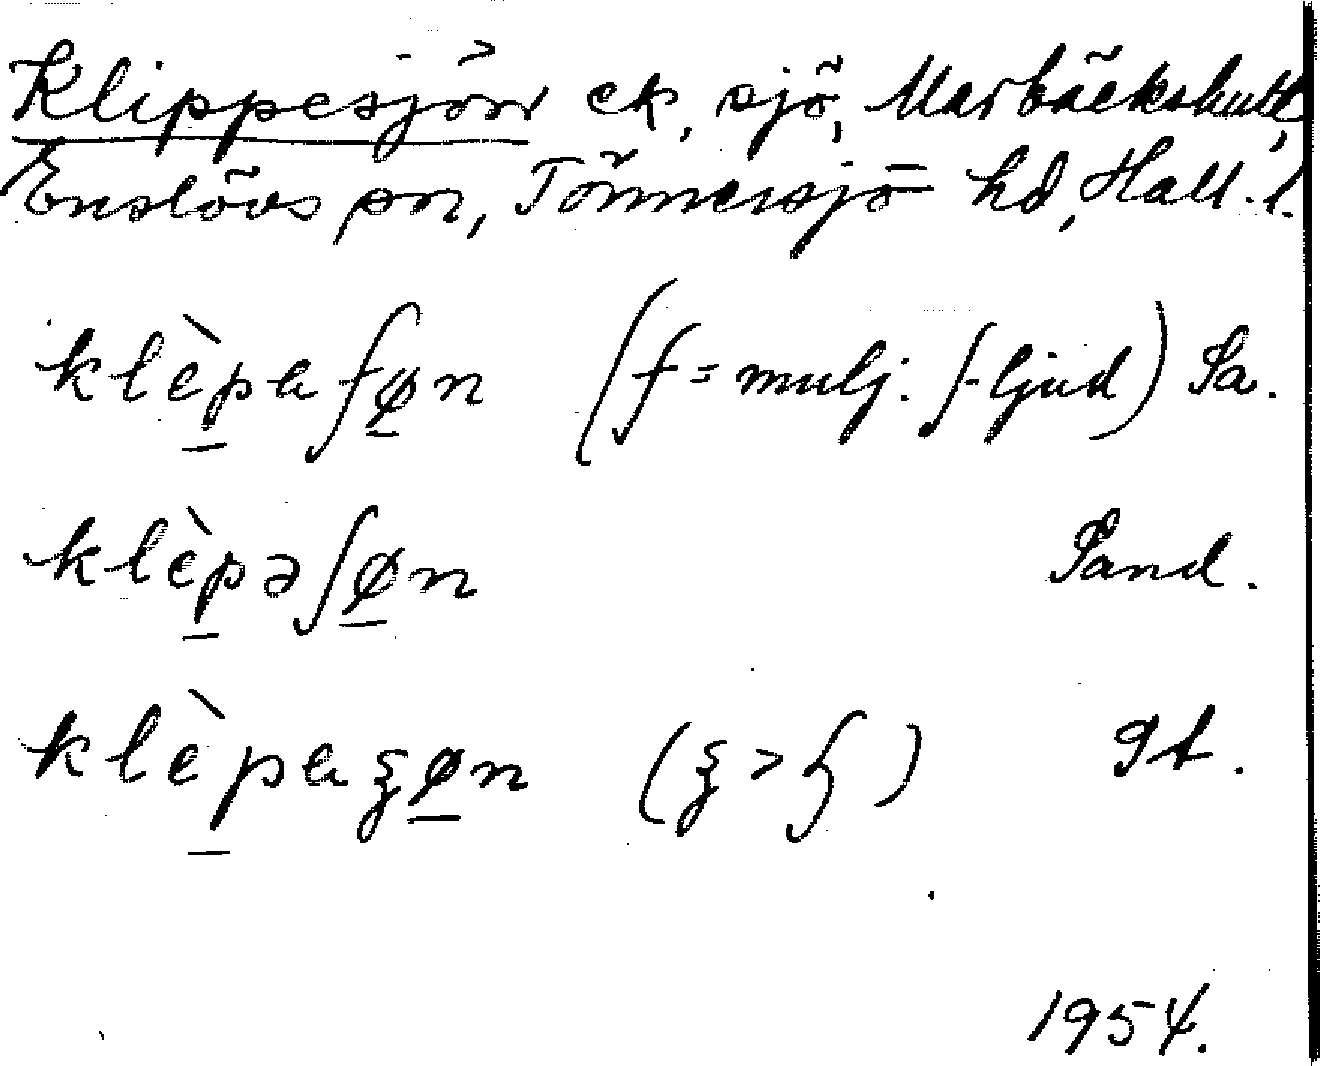 Klippesjön ek, sjö, Marbäckshult,
Enslövs sn, Tönnersjö hd, Hall. l.
klèpaʃøn (ʃ = mulj. ʃ-ljud) Sa.
klèpəʃøn Sand.
klèpaξøn (ξ > ʃ) gt.
1954.